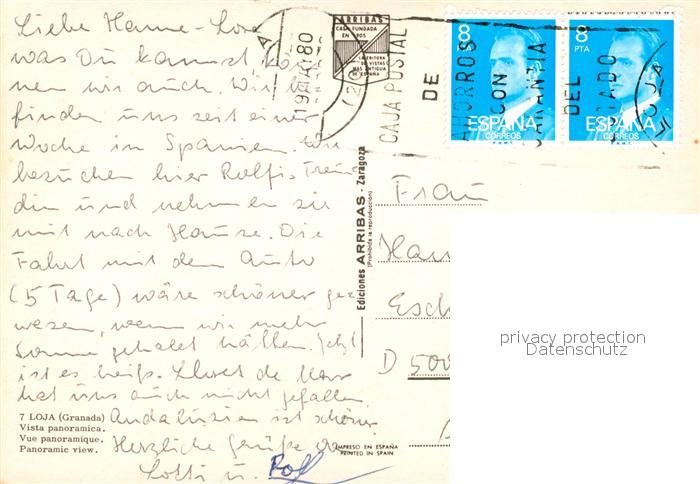 Liebe Hanne-Lore
was Du kannst kön-
nen wir auch. Wir be-
finden uns seit einer
Woche in Spanien. Wir
besuchen hier Rolfis Freun
din und nehmen sie
mit nach Hause. Die
Fahrt mit dem Auto
(5 Tage) wäre schöner ge-
wesen, wenn wir mehr
Sonne gehabt hätten. Jetzt
ist es heiß. Lloret de Mar
hat uns auch nicht gefallen
Andalusien ist schöner
Herzliche Grüße
Lotti u. Rolf
7 LOJA (Granada)
Vista panoramica.
Vue panoramique.
Panoramic view.
ARRIBAS
CASA FUNDADA
EN 1905
LA EDITORA
DE VISTAS
MAS ANTIGUA
DE ESPAÑA
Ediciones ARRIBAS - Zaragoza
(Prohibida la reproducción)
IMPRESO EN ESPAÑA
PRINTED IN SPAIN
80
CAJA POSTAL
DE
AHORROS
CON
GARANTIA
DEL
ESTADO
LOJA
8
PTA
ESPAÑA
CORREOS
8
PTA
ESPAÑA
CORREOS
Frau
Han
Esch
D 500
privacy protection
Datenschutz